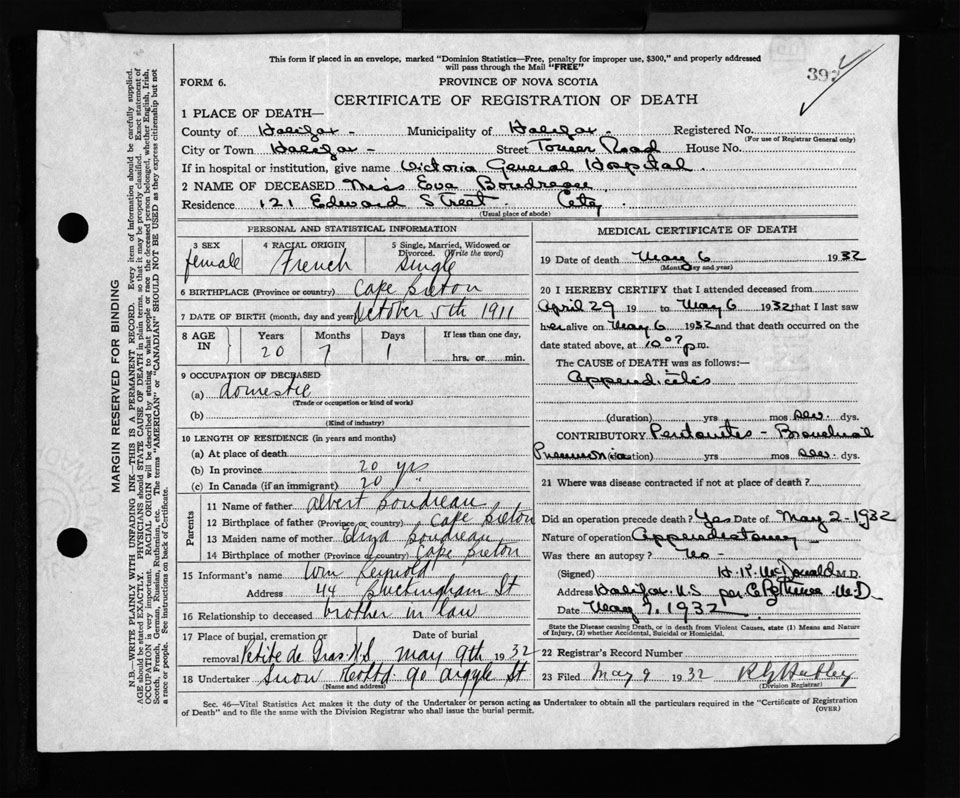 This form if placed in an envelope, marked "Dominion Statistics—Free, penalty for improper use, $300," and properly addressed
will pass through the Mail "FREE"
FORM 6.
PROVINCE OF NOVA SCOTIA
CERTIFICATE OF REGISTRATION OF DEATH
1 PLACE OF DEATH—
County of Halifax - Municipality of Halifax - Registered No.
(For use of Registrar General only)
City or Town Halifax - Street Tower Road House No.
If in hospital or institution, give name Victoria General Hospital.
2 NAME OF DECEASED Miss Eva Boudreau
Residence 121 Edward Street. City
(Usual place of abode)
PERSONAL AND STATISTICAL INFORMATION
3 SEX 4 RACIAL ORIGIN 5 Single, Married, Widowed or Divorced. (Write the word)
female French Single
6 BIRTHPLACE (Province or country) Cape Breton
7 DATE OF BIRTH (month, day and year) October 5th 1911
8 AGE IN Years Months Days If less than one day,
20 7 1 hrs. or min.
9 OCCUPATION OF DECEASED
(a) domestic
(Trade or occupation or kind of work)
(b)
(Kind of industry)
10 LENGTH OF RESIDENCE (in years and months)
(a) At place of death
(b) In province 20 yrs
(c) In Canada (if an immigrant) 20 "
Parents
11 Name of father Albert Boudreau
12 Birthplace of father (Province or country) Cape Breton
13 Maiden name of mother Eliza Boudreau
14 Birthplace of mother (Province or country) Cape Breton
15 Informant's name Wm
Address 44 Buckingham St
16 Relationship to deceased brother in law
17 Place of burial, cremation or removal Petite de Gras N.S Date of burial May 9th 1932
18 Undertaker Snow & Co Ltd. 90 Argyle St
(Name and address)
MEDICAL CERTIFICATE OF DEATH
19 Date of death May 6 1932
(Month, day and year)
20 I HEREBY CERTIFY that I attended deceased from
April 29 19 to May 6 1932 that I last saw
her alive on May 6 1932 and that death occurred on
date stated above, at 10 07 p.m.
The CAUSE OF DEATH was as follows:—
Appendicitis
(duration) yrs mos sev. dys.
CONTRIBUTORY Peritonites - Bronchial
Pneumonia (duration) yrs mos sev. dys.
21 Where was disease contracted if not at place of death?
Did an operation precede death? Yes Date of May 2 - 1932
Nature of operation Appendectomy -
Was there an autopsy? No -
(Signed) H. K. McDonald M.D.
Address Halifax N.S per M.D.
Date May 7. 1932
State the Disease causing Death, or in death from Violent Causes, state (1) Means and Nature of Injury, (2) whether Accidental, Suicidal or Homicidal.
22 Registrar's Record Number
23 Filed May 9 1932
(Division Registrar)
Sec. 46—Vital Statistics Act makes it the duty of the Undertaker or person acting as Undertaker to obtain all the particulars required in the "Certificate of Registration
of Death" and to file the same with the Division Registrar who shall issue the burial permit.
(OVER)
MARGIN RESERVED FOR BINDING
N.B.—WRITE PLAINLY WITH UNFADING INK—THIS IS A PERMANENT RECORD. Every item of information should be carefully supplied.
AGE should be stated EXACTLY. PHYSICIANS should STATE CAUSE OF DEATH in plain terms, so that it may be properly classified. Exact statement of
OCCUPATION is very important. RACIAL ORIGIN will be described by stating to what people or race the deceased person belonged, whether English, Irish,
Scotch, French, German, Russian, Ruthenian, etc. The terms "AMERICAN" or "CANADIAN" SHOULD NOT BE USED as they express citizenship but not
a race or people. See instructions on back of Certificate.